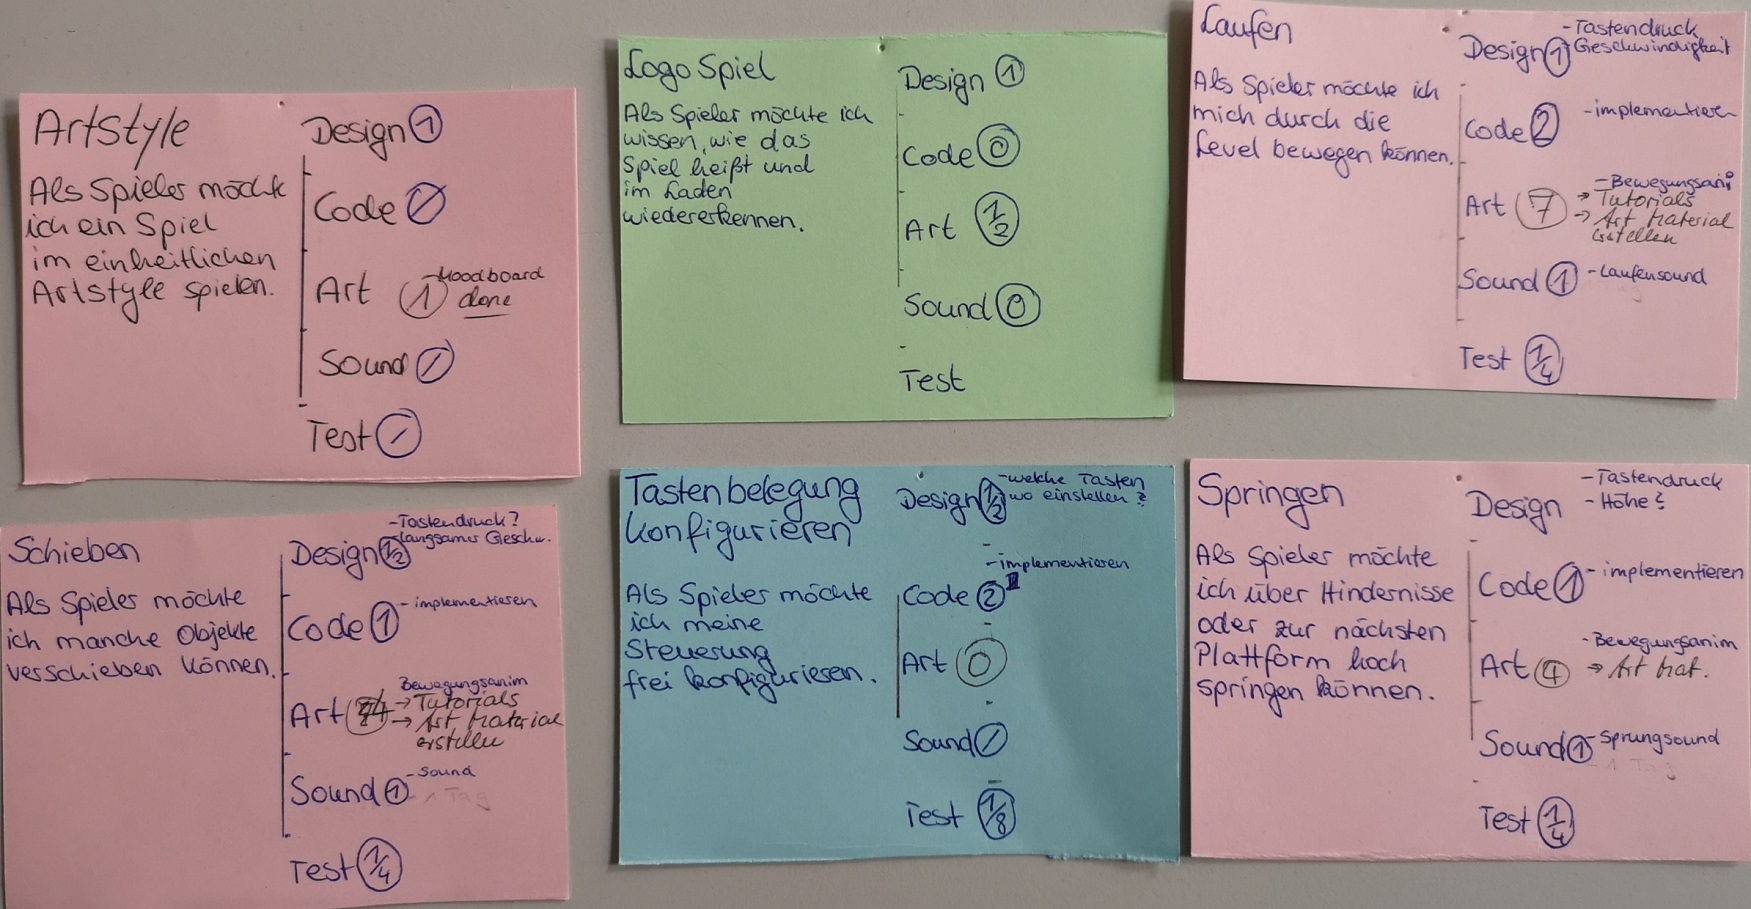 Artstyle
Als Spieler möchte
ich ein Spiel
im einheitlichen
Artstyle spielen.
Design 1
Code 0
Art 1 -Moodboard
done
Sound /
Test /
Logo Spiel
Als Spieler möchte ich
wissen, wie das
Spiel heißt und
im Laden
wiedererkennen.
Design 1
Code 0
Art 1/2
Sound 0
Test
Laufen
Als Spieler möchte ich
mich durch die
Level bewegen können.
-Tastendruck
Design 1 Geschwindigkeit
Code 2 -implementieren
-Bewegungsani
Art 7 → Tutorials
→ Art Material
erstellen
Sound 1 -Laufensound
Test 1/4
Schieben
Als Spieler möchte
ich manche Objekte
verschieben können.
-Tastendruck?
Design 1/2 -langsamer Geschw.
Code 1 -implementieren
Bewegungsanim
Art → Tutorials
→ Art Material
erstellen
Sound 1 -Sound
1 Tag
Test 1/4
Tastenbelegung
konfigurieren
Als Spieler möchte
ich meine
Steuerung
frei konfigurieren.
-welche Tasten
Design 1/2 wo einstellen?
-implementieren
Code 2
Art 0
Sound /
Test 1/8
Springen
Als Spieler möchte
ich über Hindernisse
oder zur nächsten
Plattform hoch
springen können.
-Tastendruck
Design -Höhe?
Code 1 -implementieren
-Bewegungsanim
Art 4 → Art Mat.
Sound 1 -Sprungsound
1 Tag
Test 1/4